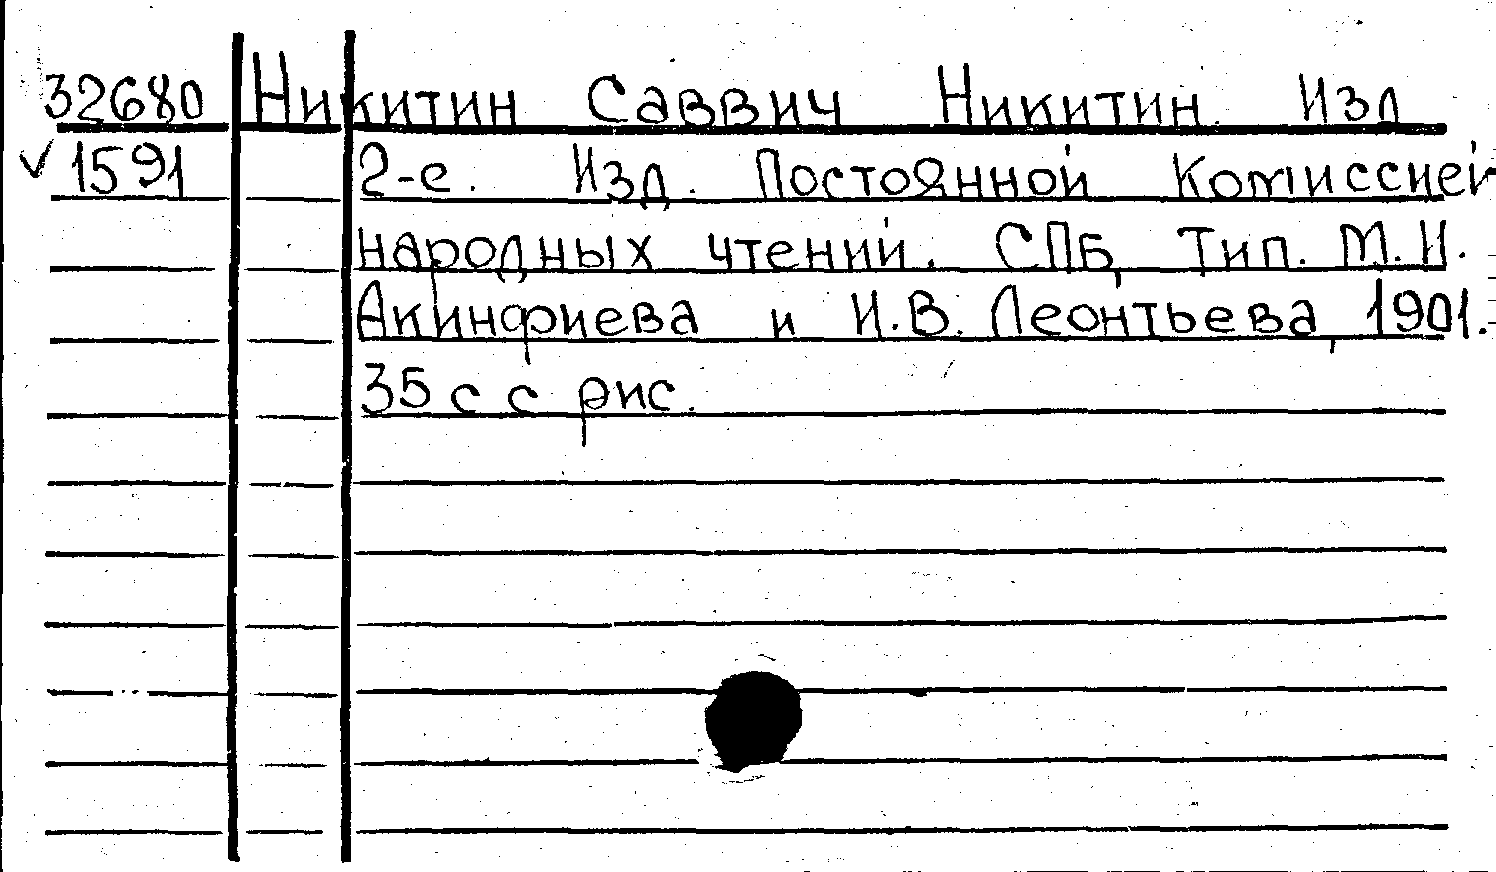 32680 Никитин Саввич Никитин. Изд
✓ 1591 2-е. Изд. Постоянной Комиссией
народных чтений. СПБ, Тип. М.И.
Акинфиева и И.В. Леонтьева, 1901.
35 с с рис.